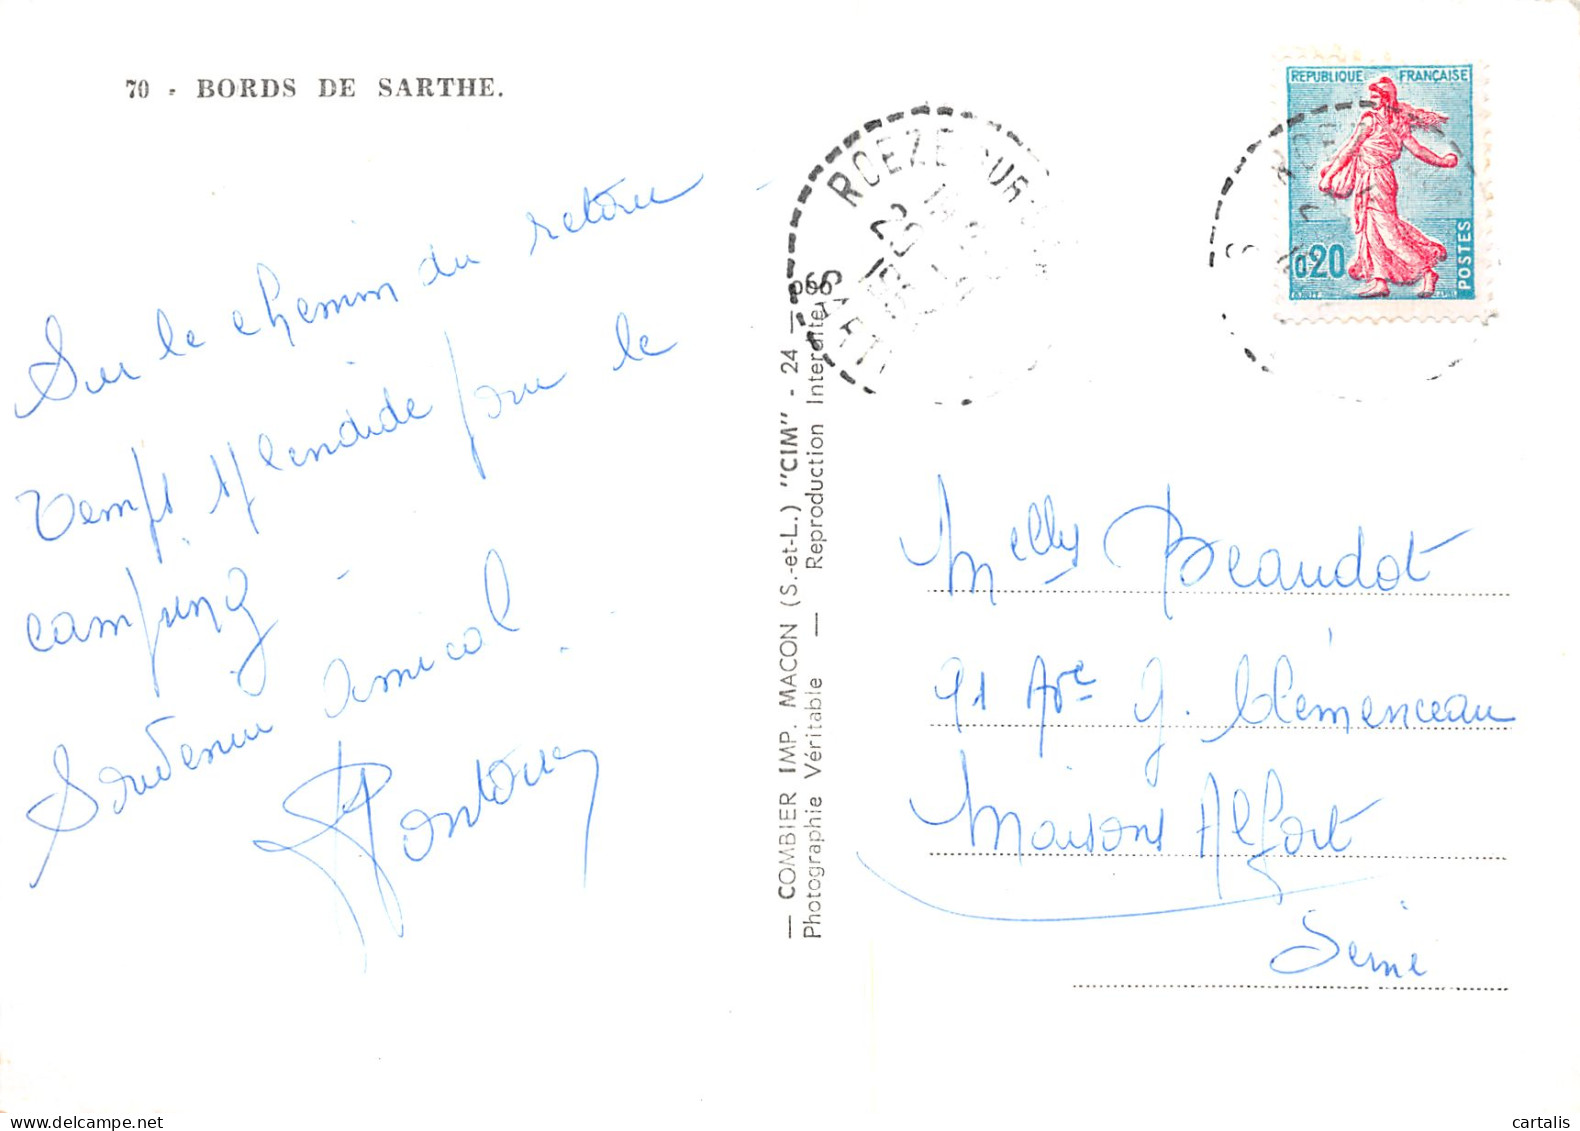 70 - BORDS DE SARTHE.
Sur le chemin du retour -
temps splendide pour le
camping -
Souvenir amical.
— COMBIER IMP. MACON (S.-et-L.) "CIM" - 24 —
Photographie Véritable — Reproduction Interdite
ROEZE SUR
SARTHE
REPUBLIQUE FRANÇAISE
0,20
POSTES
Melles Beaudot
91 Ave G. Clémenceau
Maisons Alfort
Seine
cartalis.com